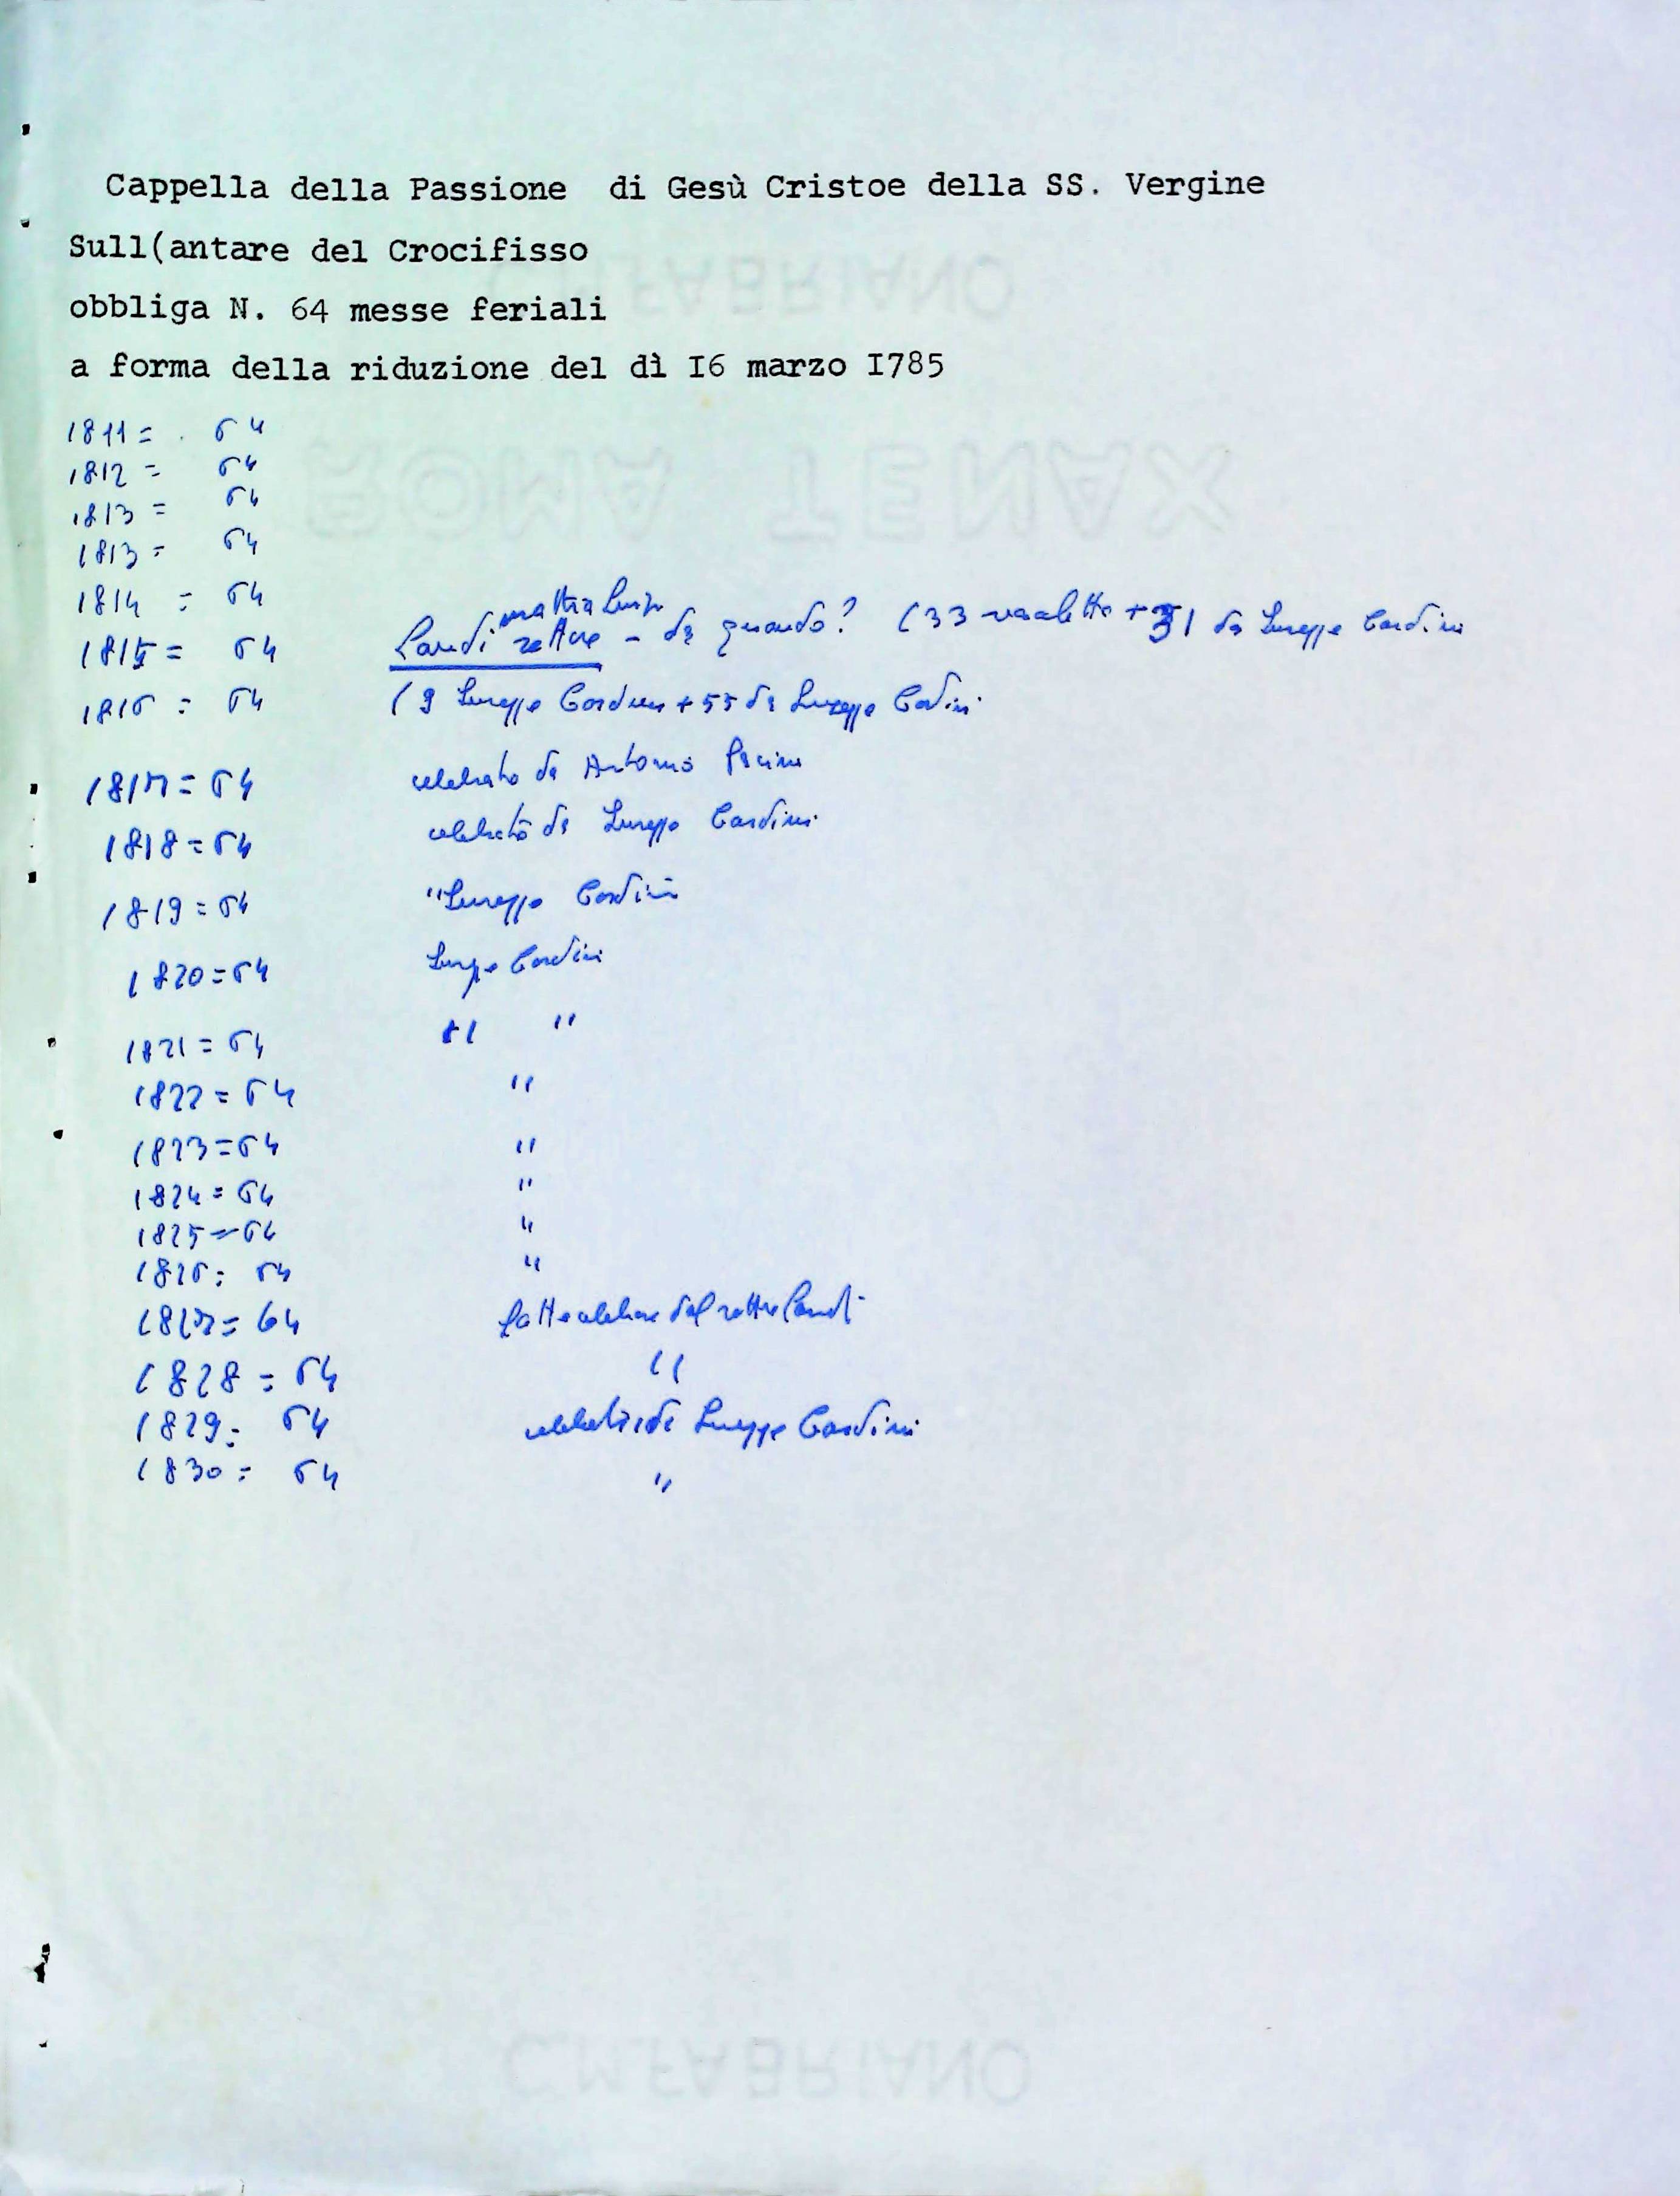 Cappella della Passione di Gesù Cristoe della SS. Vergine
Sull(antare del Crocifisso
obbliga N. 64 messe feriali
a forma della riduzione del dì I6 marzo I785
1811 = 64
1812 = 64
1813 = 64
1813 = 64
1814 = 64
1815 = 64 Landi rettore - da quando? (33 + 31 da Cardini
1816 = 64 (9 Cardini + 55 da Cardini
1817 = 64 celebrato da Antonio
1818 = 64 celebrato da Cardini
1819 = 64 " Cardini
1820 = 64 Cardini
1821 = 64 " "
1822 = 64 "
1823 = 64 "
1824 = 64 "
1825 = 64 "
1826 = 64 "
1827 = 64 fatte celebrare dal rettore Landi
1828 = 64 "
1829 = 64 celebrate da Cardini
1830 = 64 "
C.M.FABRIANO
ROMA TENAX
C.M.FABRIANO